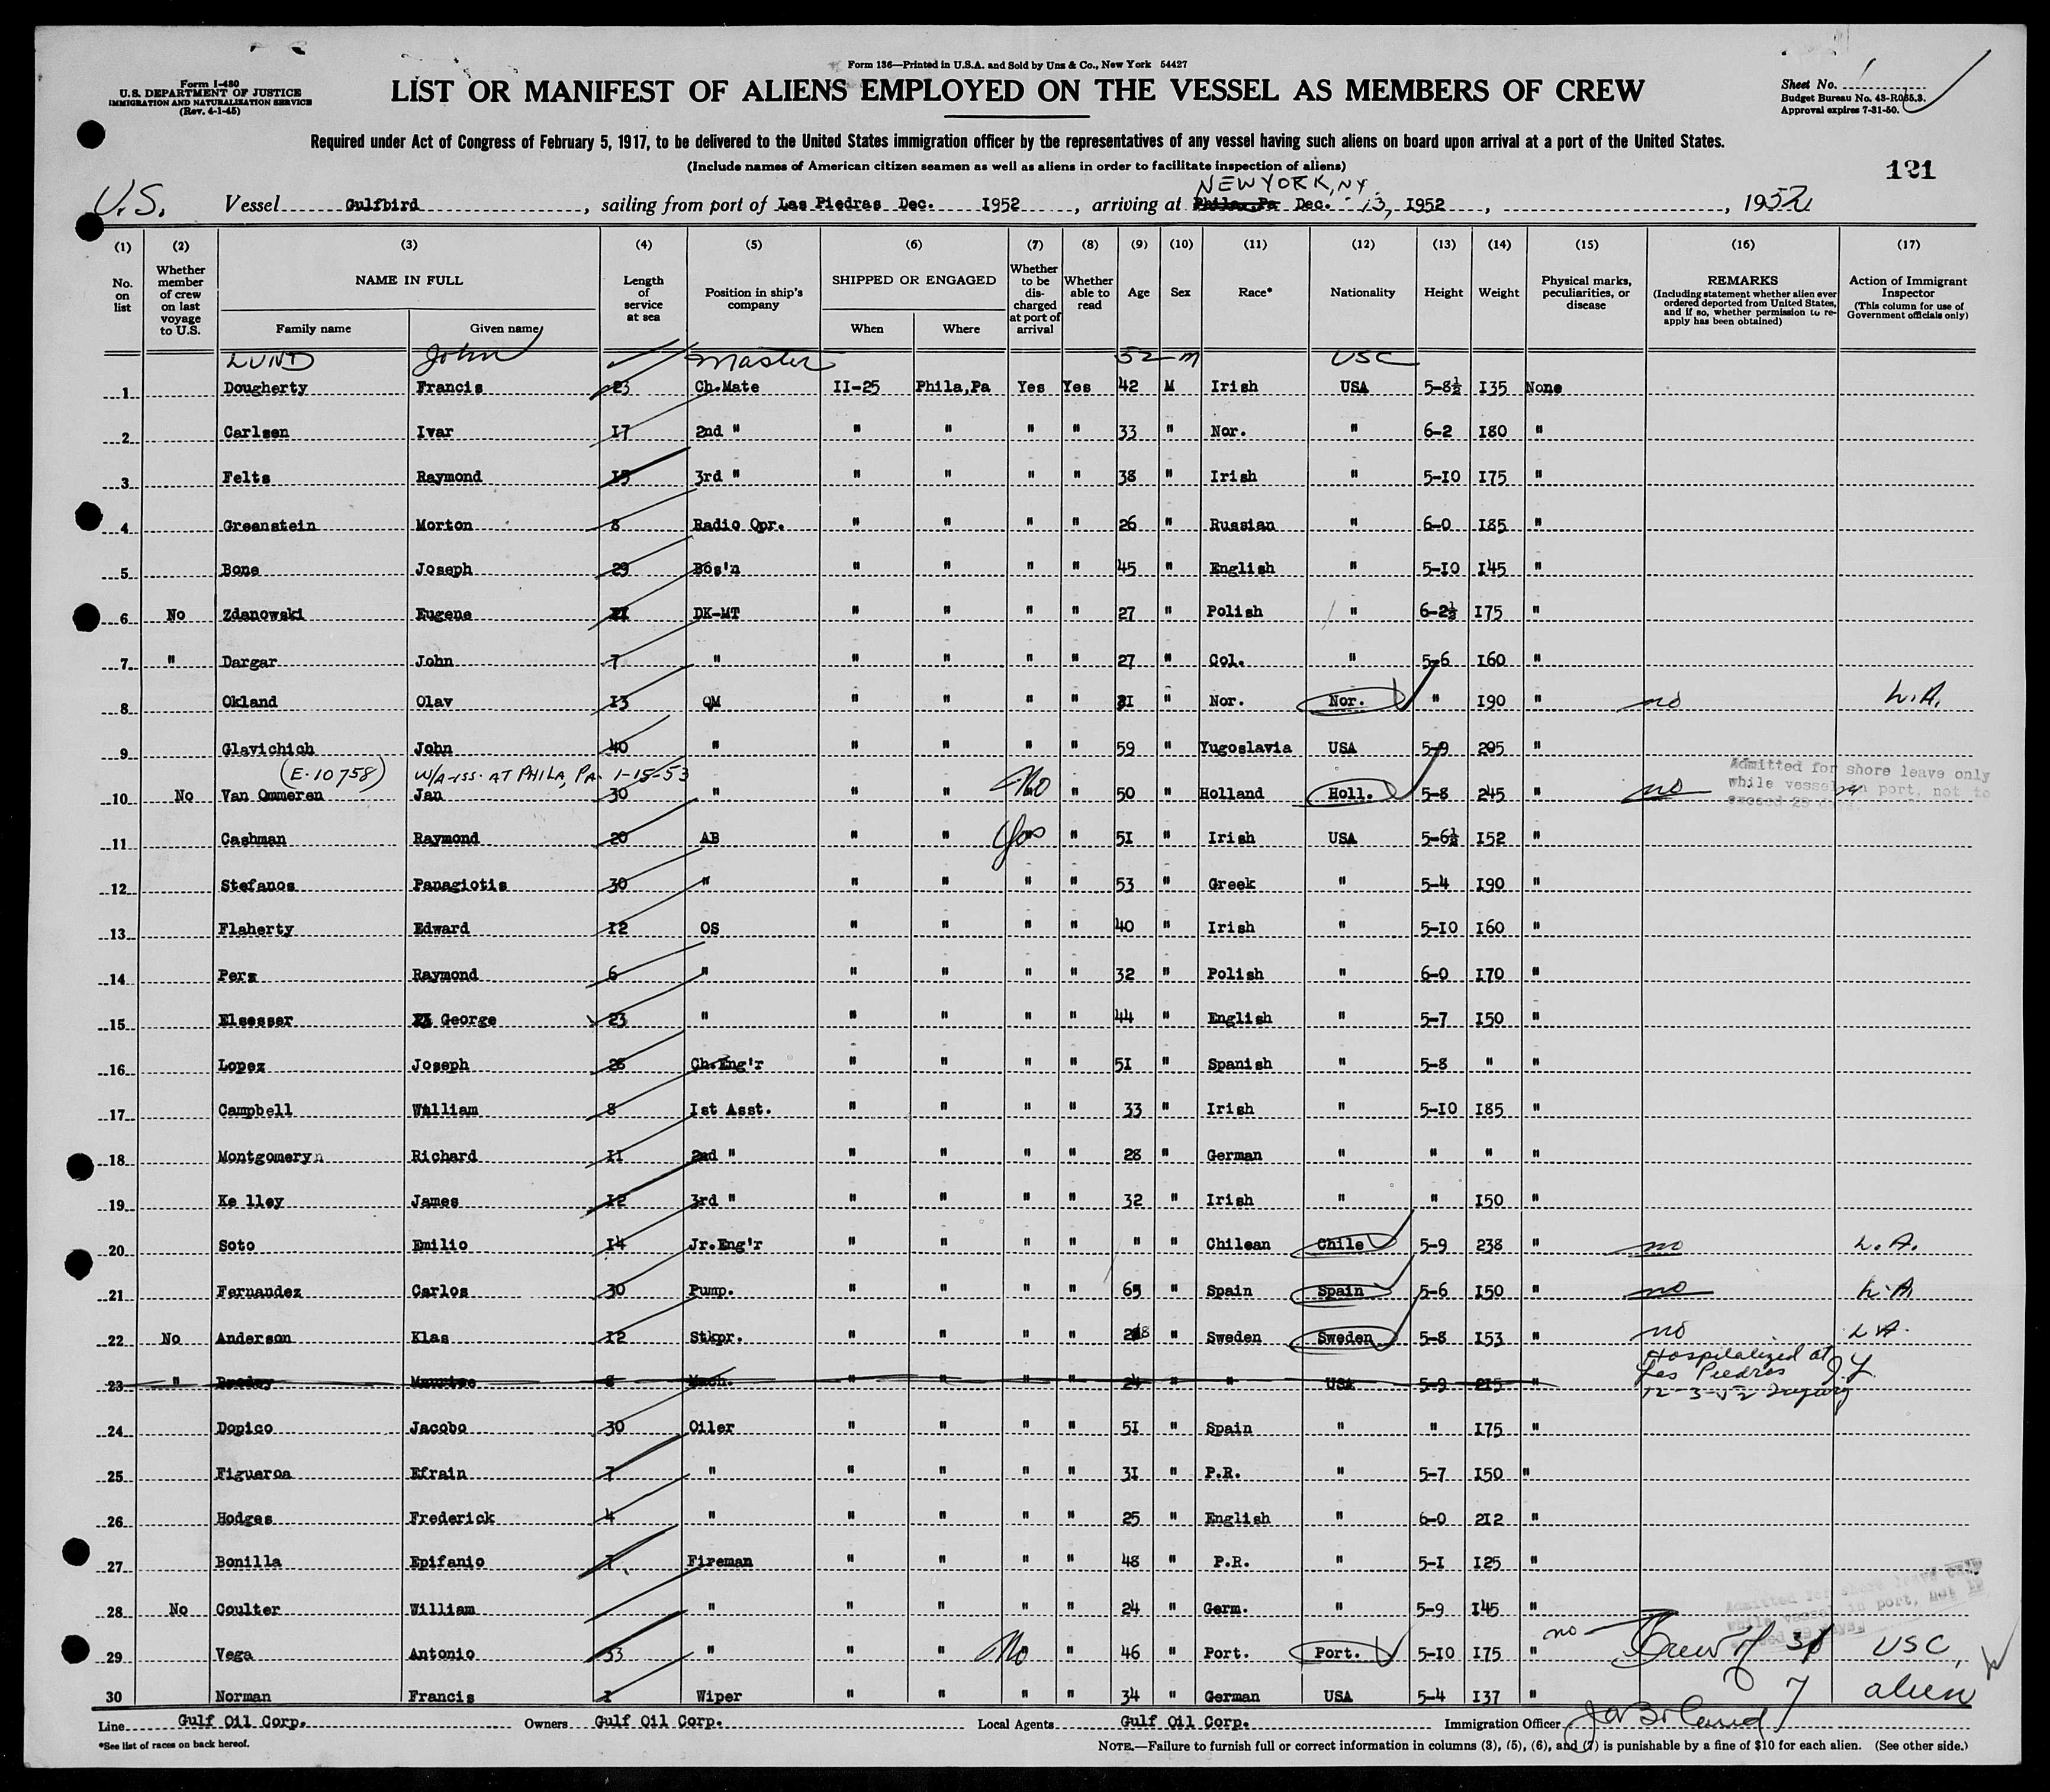 Form I-480
U.S. DEPARTMENT OF JUSTICE
IMMIGRATION AND NATURALIZATION SERVICE
(Rev. 4-1-45)
Form 136—Printed in U.S.A. and Sold by Unz & Co., New York 54427
LIST OR MANIFEST OF ALIENS EMPLOYED ON THE VESSEL AS MEMBERS OF CREW
Sheet No. 1
Budget Bureau No. 43-R065.3.
Approval expires 7-31-50.
Required under Act of Congress of February 5, 1917, to be delivered to the United States immigration officer by the representatives of any vessel having such aliens on board upon arrival at a port of the United States.
(Include names of American citizen seamen as well as aliens in order to facilitate inspection of aliens)
121
NEW YORK, NY.
U.S. Vessel Gulfbird, sailing from port of Las Piedras Dec. 1952, arriving at Phila. Pa Dec. 13, 1952, 1952
(1) (2) (3) (4) (5) (6) (7) (8) (9) (10) (11) (12) (13) (14) (15) (16) (17)
No. on list
Whether member of crew on last voyage to U.S.
NAME IN FULL
Family name
Given name
Length of service at sea
Position in ship's company
SHIPPED OR ENGAGED
When
Where
Whether to be discharged at port of arrival
Whether able to read
Age
Sex
Race*
Nationality
Height
Weight
Physical marks, peculiarities, or disease
REMARKS
(Including statement whether alien ever ordered deported from United States, and if so, whether permission to reapply has been obtained)
Action of Immigrant Inspector
(This column for use of Government officials only)
LUND John Master 52 M USC
1 Dougherty Francis 23 Ch.Mate II-25 Phila,Pa Yes Yes 42 M Irish USA 5-8½ 135 None
2 Carlsen Ivar 17 2nd " " " " " 33 " Nor. " 6-2 180 "
3 Felts Raymond 15 3rd " " " " " 38 " Irish " 5-10 175 "
4 Greenstein Morton 8 Radio Opr. " " " " 26 " Russian " 6-0 185 "
5 Bone Joseph 29 Bos'n " " " " 45 " English " 5-10 145 "
6 No Zdanowski Eugene DK-MT " " " " 27 " Polish " 6-2½ 175 "
7 " Dargar John 7 " " " " " 27 " Col. " 5-6 160 "
8 Okland Olav 13 QM " " " " 31 " Nor. Nor. " 190 " no L.A.
9 Glavichich John 40 " " " " " 59 " Yugoslavia USA 5-9 205 "
(E-10758) W/A-ISS. AT PHILA, PA. 1-15-53
10 No Van Ommeren Jan 30 " " " No " 50 " Holland Holl. 5-8 245 " no
Admitted for shore leave only
while vessel in port, not to
exceed 29 days.
11 Cashman Raymond 20 AB " " Yes " 51 " Irish USA 5-6½ 152 "
12 Stefanos Panagiotis 30 " " " " " 53 " Greek " 5-4 190 "
13 Flaherty Edward 12 OS " " " " 40 " Irish " 5-10 160 "
14 Perz Raymond 6 " " " " " 32 " Polish " 6-0 170 "
15 Elsesser George 23 " " " " " 44 " English " 5-7 150 "
16 Lopez Joseph 26 Ch.Eng'r " " " " 51 " Spanish " 5-8 " "
17 Campbell William 8 1st Asst. " " " " 33 " Irish " 5-10 185 "
18 Montgomery Richard 11 2nd " " " " " 28 " German " " " "
19 Ke lley James 12 3rd " " " " " 32 " Irish " " 150 "
20 Soto Emilio 14 Jr.Eng'r " " " " " " Chilean Chile 5-9 238 " no L.A.
21 Fernandez Carlos 30 Pump. " " " " 65 " Spain Spain 5-6 150 " no L.A.
22 No Anderson Klas 12 Stkpr. " " " " 28 " Sweden Sweden 5-8 153 " no L.A.
23 " Maurice 8 Mach. " " " " 24 " " USA 5-9 215 " Hospitalized at Las Piedras 12-3-52 Injury
24 Dopico Jacobo 30 Oiler " " " " 51 " Spain " " 175 "
25 Figueroa Efrain 7 " " " " " 31 " P.R. " 5-7 150 "
26 Hodges Frederick 4 " " " " " 25 " English " 6-0 212 "
27 Bonilla Epifanio 7 Fireman " " " " 48 " P.R. " 5-1 125 "
28 No Coulter William " " " " " 24 " Germ. " 5-9 145 "
Admitted for shore leave only
while vessel in port, not to
exceed 29 days.
29 Vega Antonio 33 " " " No " 46 " Port. Port. 5-10 175 " no Crew of 38 USC,
30 Norman Francis 1 Wiper " " " " 34 " German USA 5-4 137 " 7 alien
Line Gulf Oil Corp. Owners Gulf Oil Corp. Local Agents Gulf Oil Corp. Immigration Officer
*See list of races on back hereof.
NOTE.—Failure to furnish full or correct information in columns (3), (5), (6), and (7) is punishable by a fine of $10 for each alien. (See other side.)